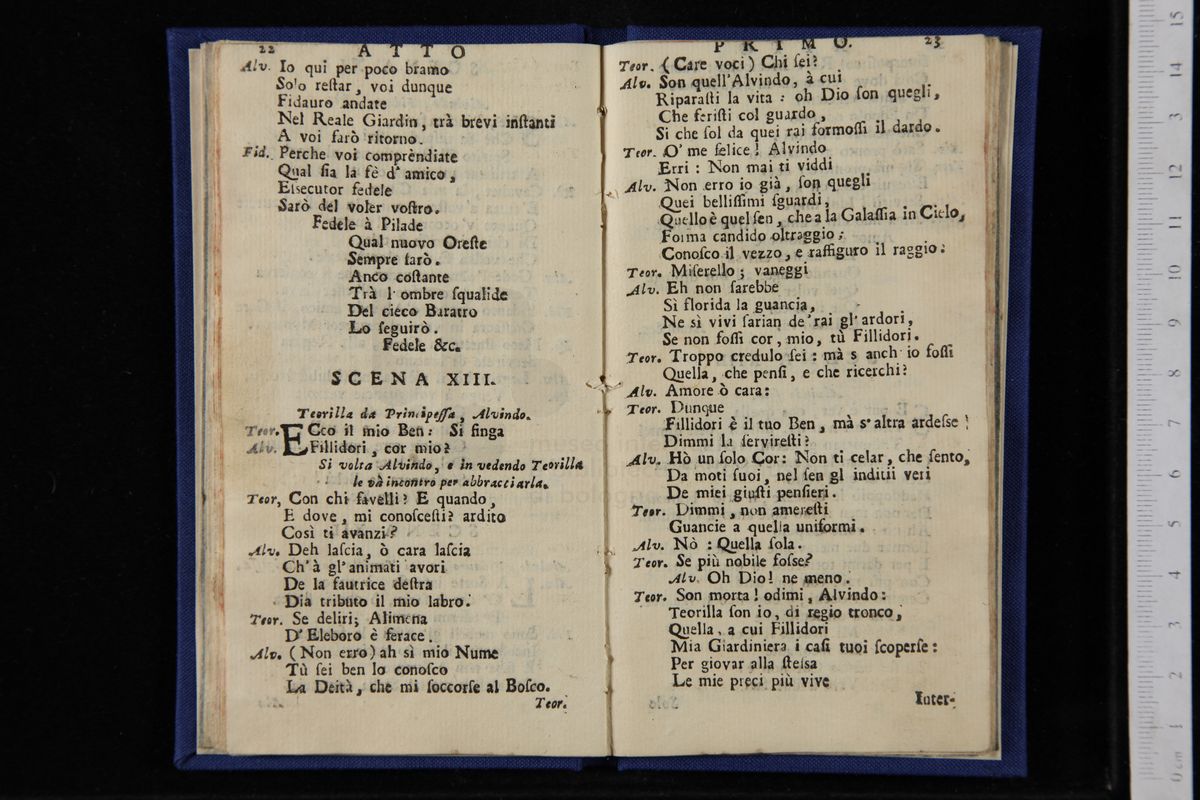 22 ATTO
Alv. Io qui per poco bramo
Solo reſtar, voi dunque
Fidauro andate
Nel Reale Giardin, trà brevi inſtanti
A voi farò ritorno.
Fid. Perche voi comprèndiate
Qual ſia la fè d'amico,
Eſsecutor fedele
Sarò del voler voſtro.
Fedele à Pilade
Qual nuovo Oreſte
Sempre ſarò.
Anco coſtante
Trà l'ombre ſqualide
Del cieco Baratro
Lo ſeguirò.
Fedele &c.
SCENA XIII.
Teorilla da Principeſſa, Alvindo.
Teor. ECco il mio Ben: Si finga
Alv. Fillidori, cor mio?
Si volta Alvindo, e in vedendo Teorilla
le và incontro per abbracciarla.
Teor, Con chi favelli? E quando,
E dove, mi conoſceſti? ardito
Così ti avanzi?
Alv. Deh laſcia, ò cara laſcia
Ch'à gl'animati avori
De la fautrice deſtra
Dia tributo il mio labro.
Teor. Se deliri; Alimena
D'Eleboro è ferace.
Alv. (Non erro) ah sì mio Nume
Tù ſei ben lo conoſco
La Deità, che mi ſoccorſe al Boſco.
Teor.
PRIMO. 23
Teor. (Care voci) Chi ſei?
Alv. Son quell'Alvindo, à cui
Riparaſti la vita: oh Dio ſon quegli,
Che feriſti col guardo,
Si che ſol da quei rai formoſſi il dardo.
Teor. O' me felice! Alvindo
Erri: Non mai ti viddi
Alv. Non erro io già, ſon quegli
Quei belliſſimi ſguardi,
Quello è quel ſen, che a la Galaſſia in Cielo,
Forma candido oltraggio;
Conoſco il vezzo, e raffiguro il raggio:
Teor. Miſerello; vaneggi
Alv. Eh non ſarebbe
Sì florida la guancia,
Ne sì vivi ſarian de'rai gl'ardori,
Se non foſſi cor, mio, tù Fillidori.
Teor. Troppo credulo ſei: mà s anch'io foſſi
Quella, che penſi, e che ricerchi?
Alv. Amore ò cara:
Teor. Dunque
Fillidori è il tuo Ben, mà s'altra ardeſse!
Dimmi la ſervireſti?
Alv. Hò un ſolo Cor: Non ti celar, che ſento,
Da moti ſuoi, nel ſen gl inditii veri
De miei giuſti penſieri.
Teor. Dimmi, non amereſti
Guancie a quella uniformi.
Alv. Nò: Quella ſola.
Teor. Se più nobile foſse?
Alv. Oh Dio! ne meno.
Teor. Son morta! odimi, Alvindo:
Teorilla ſon io, di regio tronco,
Quella, a cui Fillidori
Mia Giardiniera i caſi tuoi ſcoperſe:
Per giovar alla ſteſsa
Le mie preci più vive
Inter-